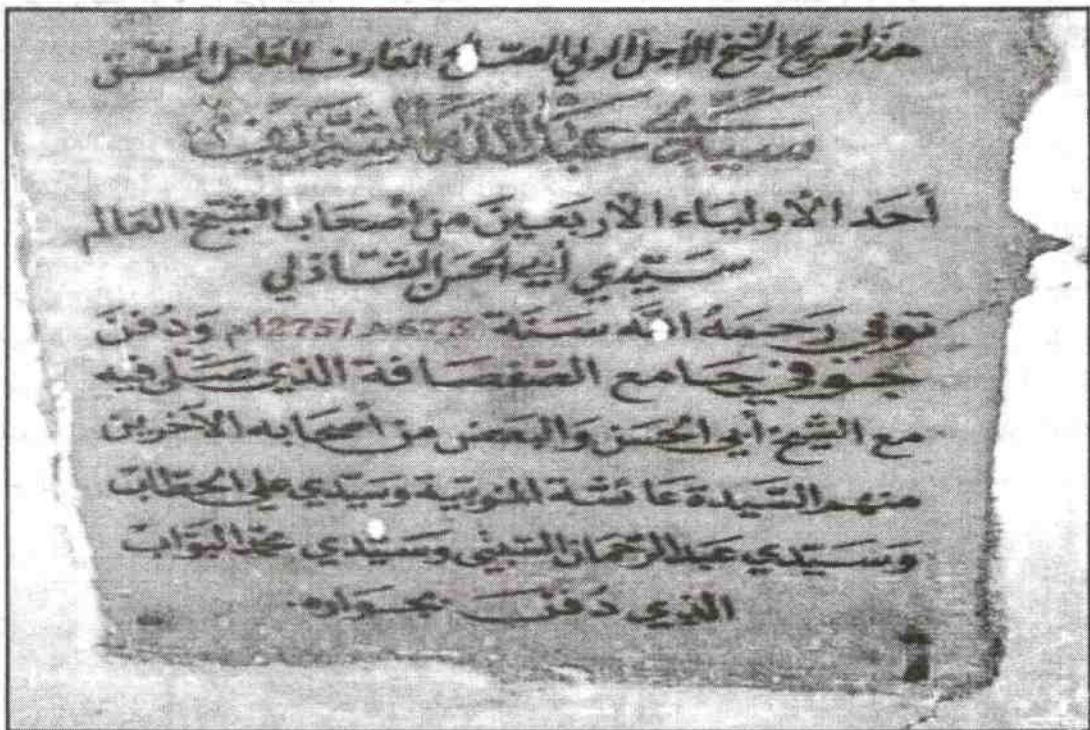 هذا ضريح الشيخ الأجل الولي الصالح العارف العامل المحقق
سيدي عبد الله الشريف
أحد الأولياء الأربعين من أصحاب الشيخ العالم
سيدي أبي الحسن الشاذلي
توفي رحمه الله سنة 673هـ/1275م ودفن
جوفي جامع الصفصافة الذي صلى فيه
مع الشيخ أبي الحسن والبعض من أصحابه الآخرين
منهم السيدة عائشة المنوبية وسيدي علي الحطاب
وسيدي عبد الرحمان التبيني وسيدي محمد البواب
الذي دفن بجواره.